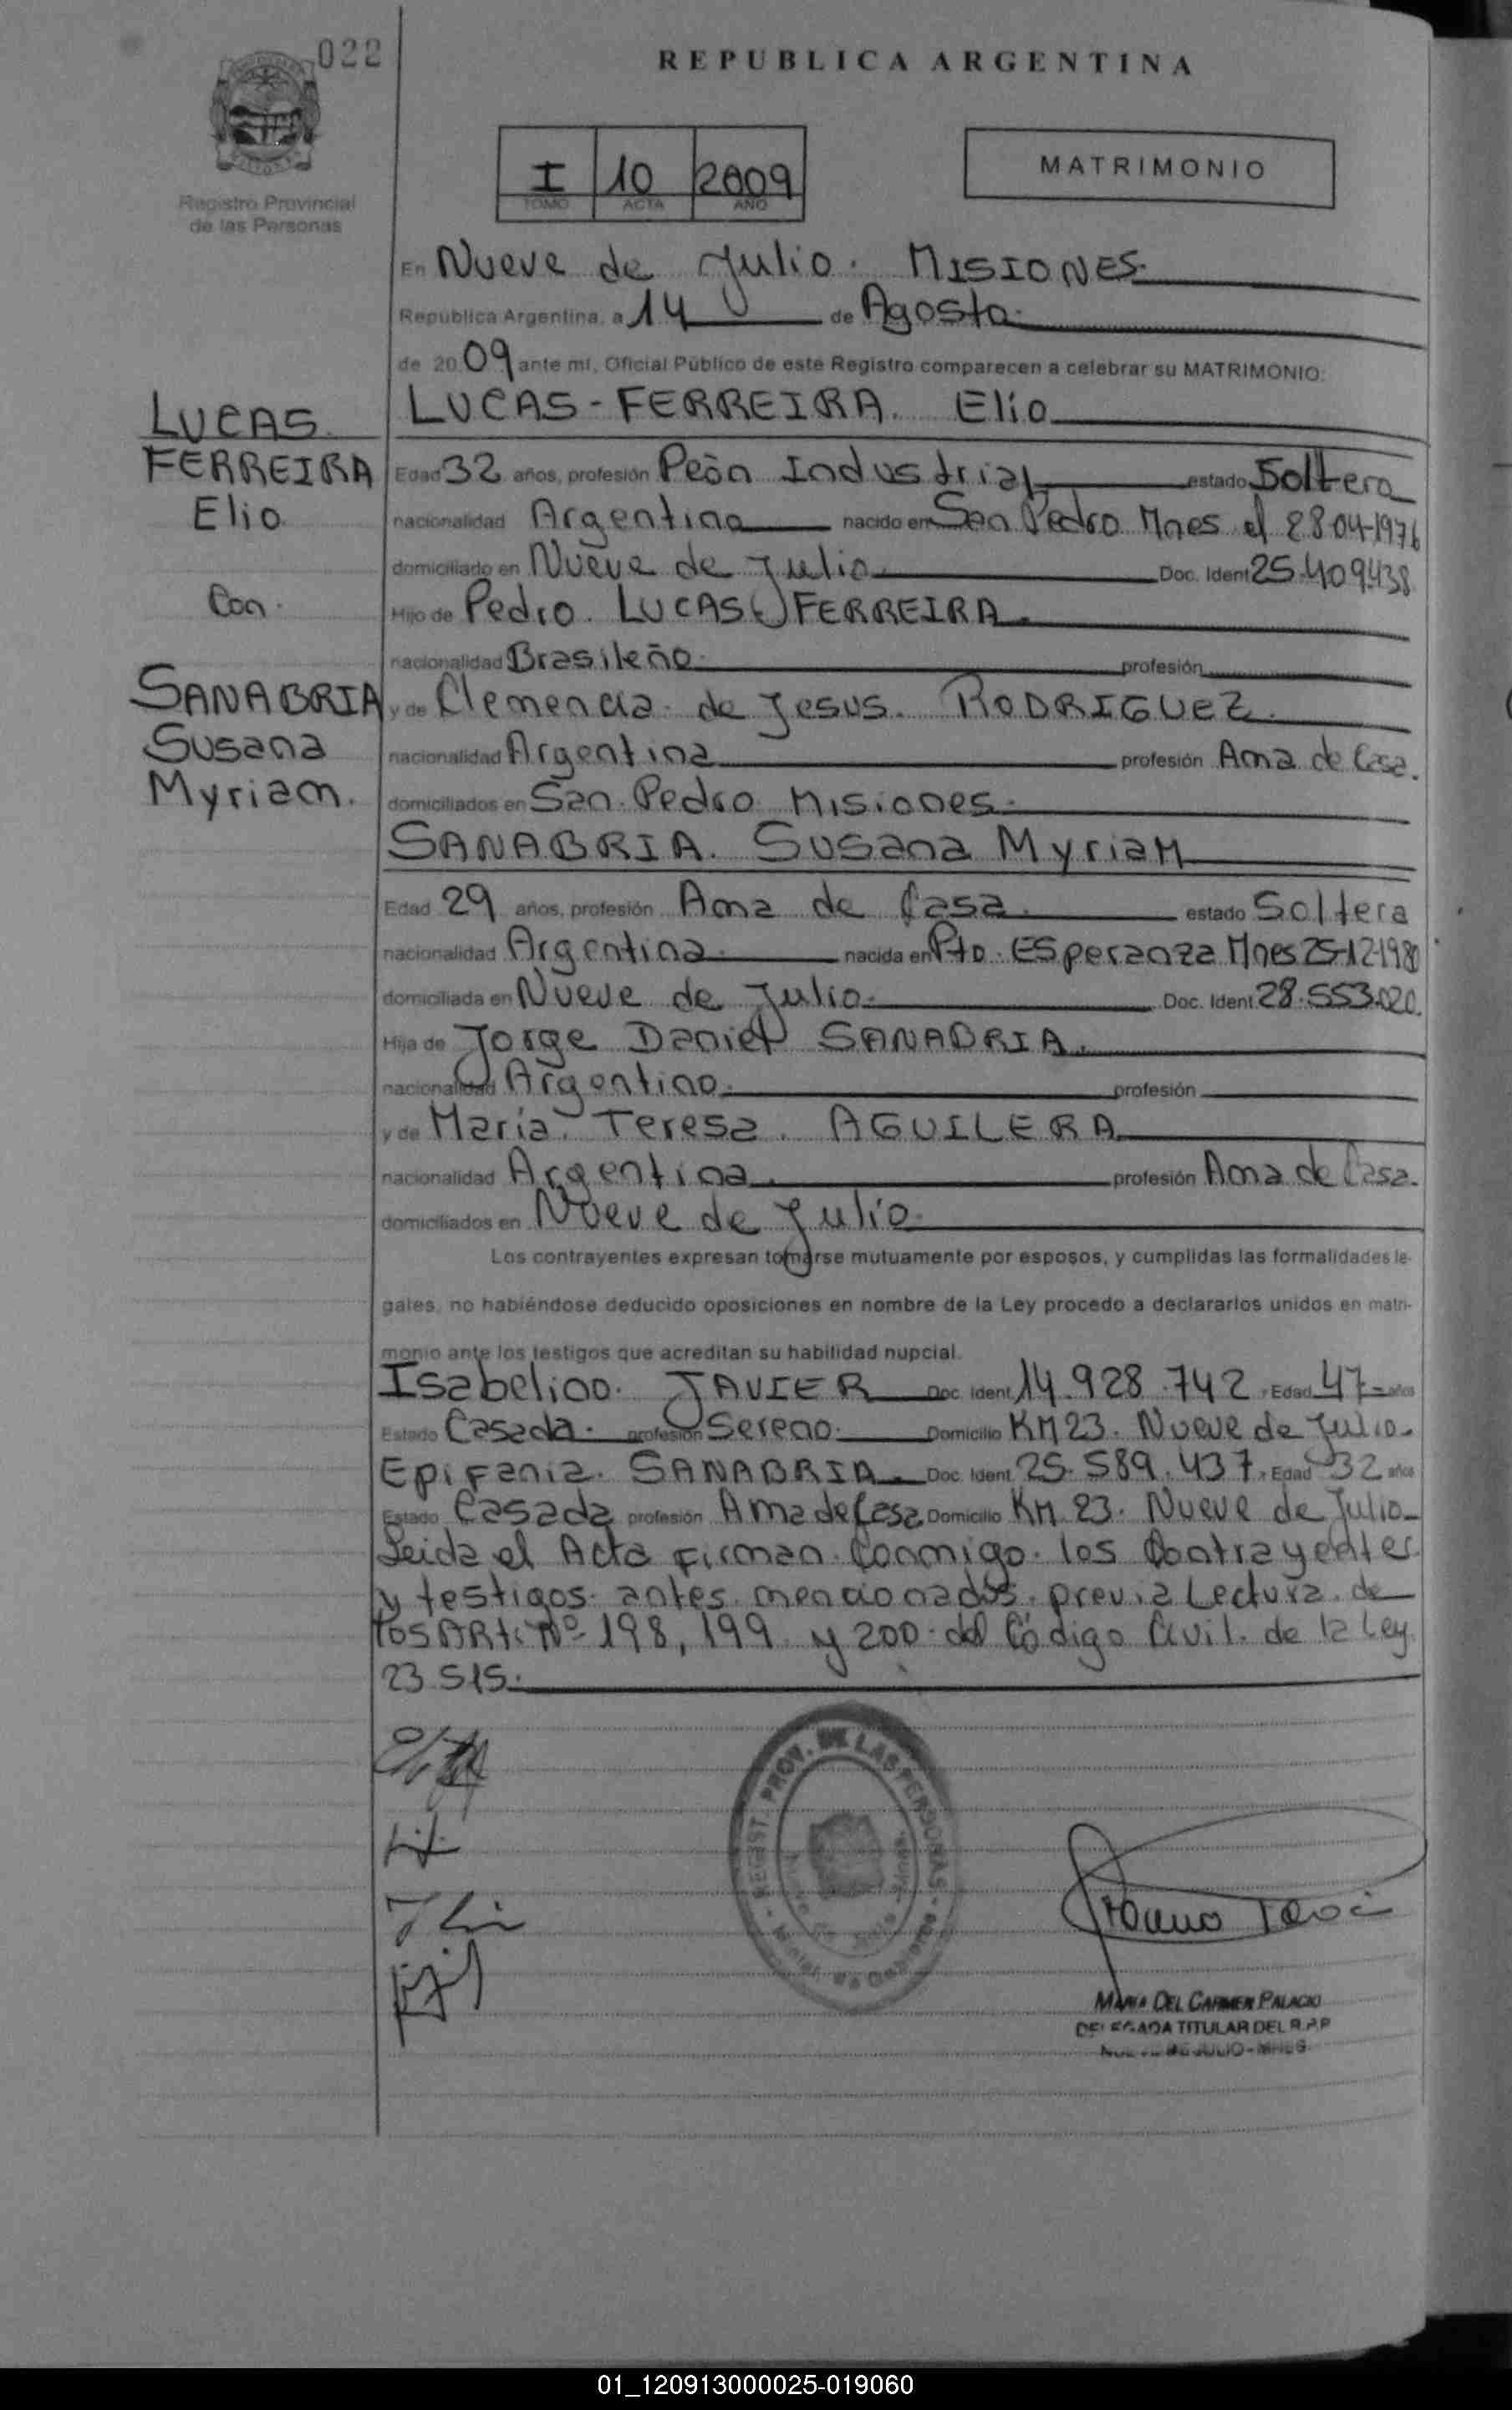 022
REPUBLICA ARGENTINA
I 10 2009
TOMO ACTA AÑO
MATRIMONIO
Registro Provincial
de las Personas
En Nueve de Julio. MISIONES.
Republica Argentina, a 14 de Agosto.
de 2009 ante mi, Oficial Público de este Registro comparecen a celebrar su MATRIMONIO:
LUCAS-FERREIRA. Elio
LUCAS
FERREIRA
Elio
Con.
SANABRIA
Susana
Myriam.
Edad 32 años, profesión Peón Industrial estado Soltero
nacionalidad Argentino nacido en San Pedro Mnes el 28-04-1976
domiciliado en Nueve de Julio. Doc. Ident. 25.409.438
Hijo de Pedro. LUCAS FERREIRA.
nacionalidad Brasileño. profesión
y de Clemencia de Jesus. RODRIGUEZ.
nacionalidad Argentina profesión Ama de Casa.
domiciliados en San Pedro Misiones.
SANABRIA. Susana Myriam
Edad 29 años, profesión Ama de Casa. estado Soltera
nacionalidad Argentina. nacida en Pto. Esperanza Mnes 25-12-1980
domiciliada en Nueve de Julio. Doc. Ident. 28.553.020.
Hija de Jorge Daniel SANABRIA.
nacionalidad Argentino. profesión
y de María Teresa. AGUILERA
nacionalidad Argentina. profesión Ama de Casa.
domiciliados en Nueve de Julio.
Los contrayentes expresan tomarse mutuamente por esposos, y cumplidas las formalidades le-
gales, no habiéndose deducido oposiciones en nombre de la Ley procedo a declararlos unidos en matri-
monio ante los testigos que acreditan su habilidad nupcial.
Isabelino. JAVIER Doc. Ident. 14.928.742, Edad 47 años
Estado Casado. profesión Sereno. Domicilio KM 23. Nueve de Julio.
Epifania. SANABRIA. Doc. Ident. 25.589.437, Edad 32 años
Estado Casada profesión Ama de Casa Domicilio KM. 23. Nueve de Julio
Leida el Acta firman Conmigo los Contrayentes
y testigos antes mencionados, previa Lectura de
los ARt. Nº 198, 199 y 200 del Código Civil. de la Ley
23.515.
REGIST. PROV. DE LAS PERSONAS
MARIA DEL CARMEN PALACIO
DELEGADA TITULAR DEL R.P.P
NUEVE DE JULIO - MNES
01_120913000025-019060